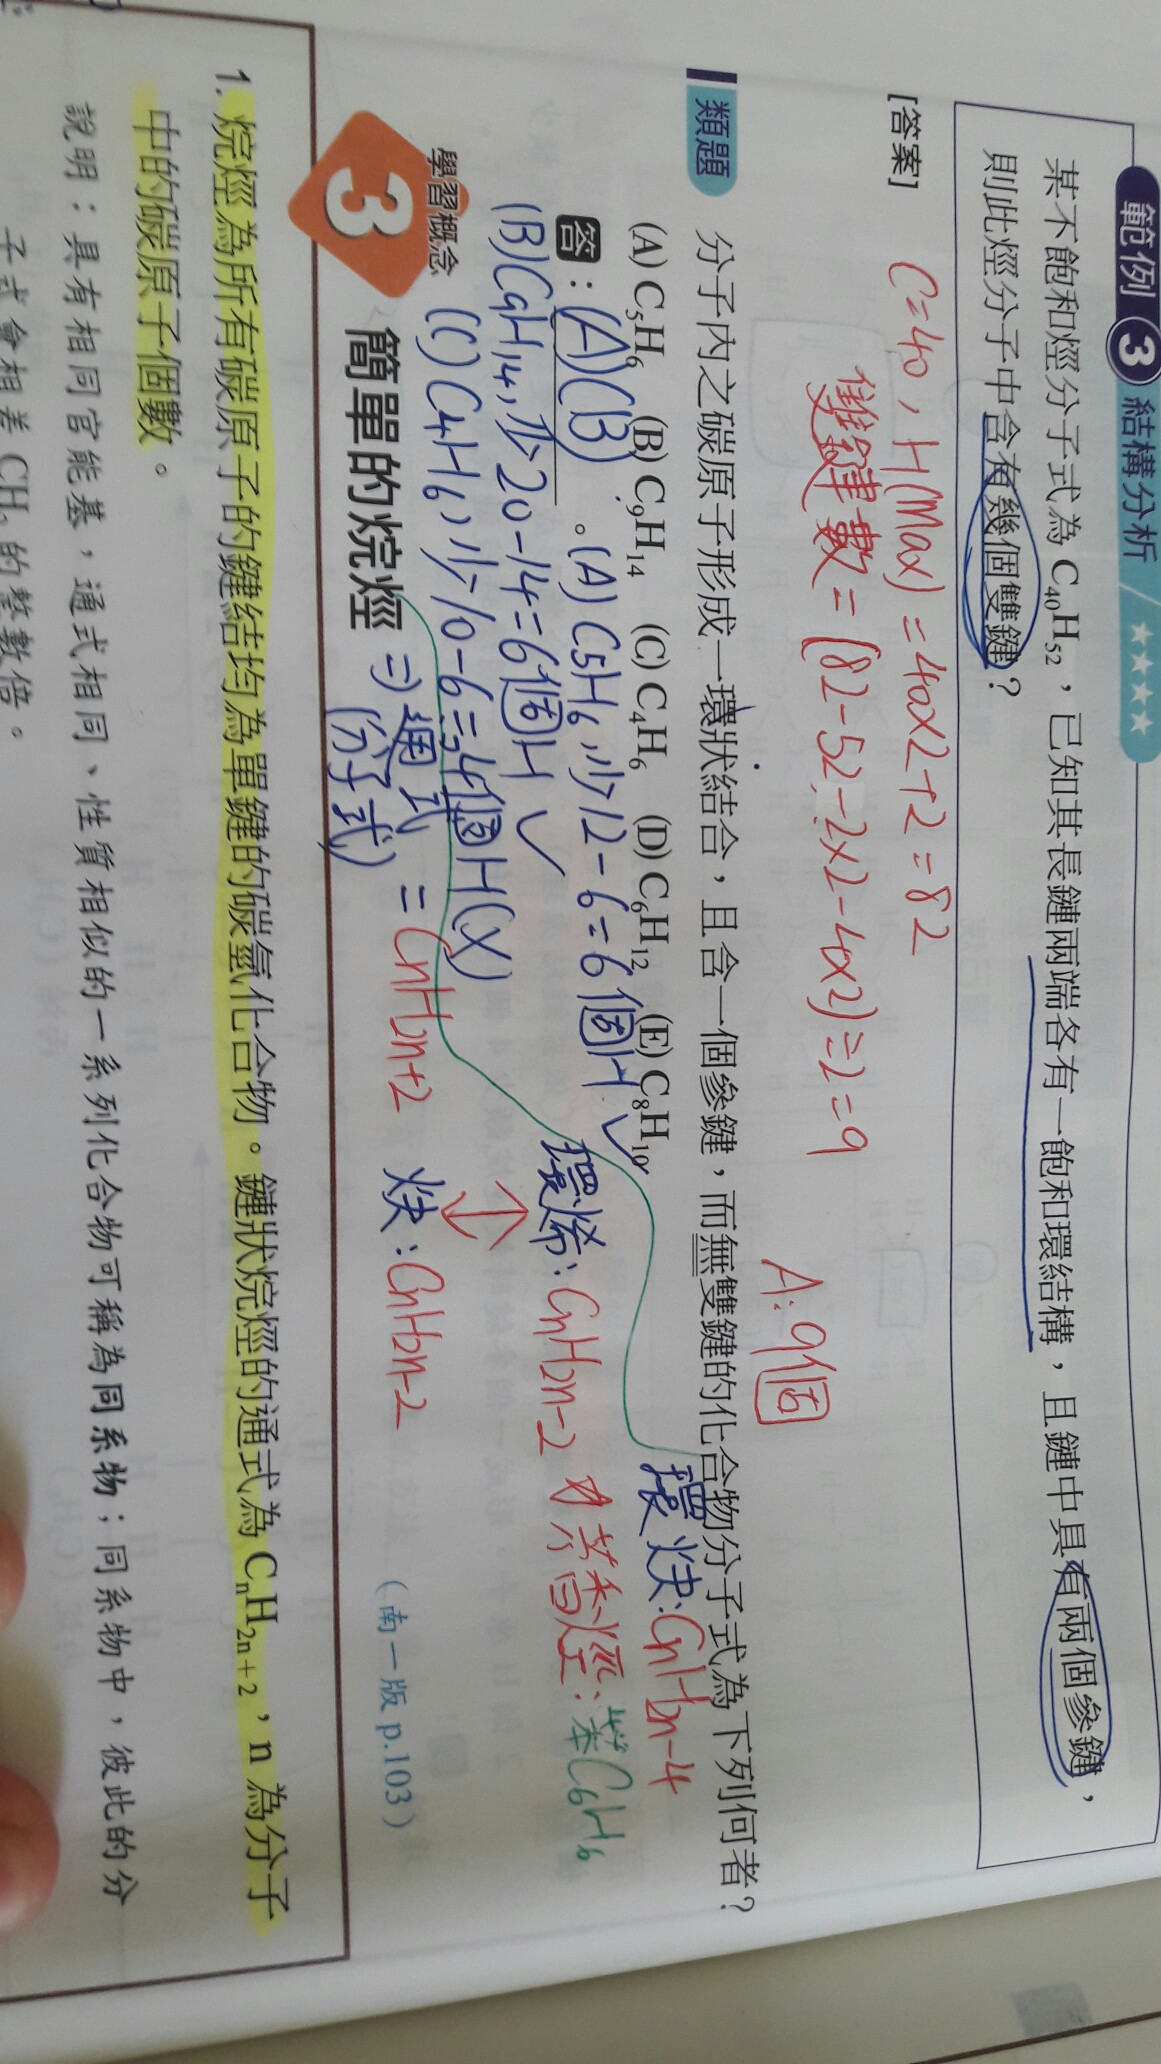 範例 3 結構分析 ★★★★
某不飽和烴分子式為 C₄₀H₅₂，已知其長鏈兩端各有一飽和環結構，且鏈中具有兩個參鍵，
則此烴分子中含有幾個雙鍵？
[答案]
C=40，H(Max)=40×2+2=82
雙鍵數=(82-52-2×2-4×2)÷2=9
A:9個
類題
分子內之碳原子形成一環狀結合，且含一個參鍵，而無雙鍵的化合物分子式為下列何者？
(A) C₅H₆ (B) C₉H₁₄ (C) C₄H₆ (D) C₆H₁₂ (E) C₈H₁₀
環炔:CnH2n-4
答：(A)(B)。(A) C5H6，少12-6=6個H ✓
(B)C9H14，少20-14=6個H ✓
環烯:CnH2n-2 芳香烴:苯C6H6
(C)C4H6，少10-6=4個H(X)
學習概念
3 簡單的烷烴 ⇒通式=CnH2n+2 炔:CnH2n-2
(分子式)
(南一版 p.103)
1. 烷烴為所有碳原子的鍵結均為單鍵的碳氫化合物。鏈狀烷烴的通式為 CₙH₂ₙ₊₂，n 為分子
中的碳原子個數。
說明：具有相同官能基，通式相同、性質相似的一系列化合物可稱為同系物；同系物中，彼此的分
子式會相差 CH₂ 的整數倍。